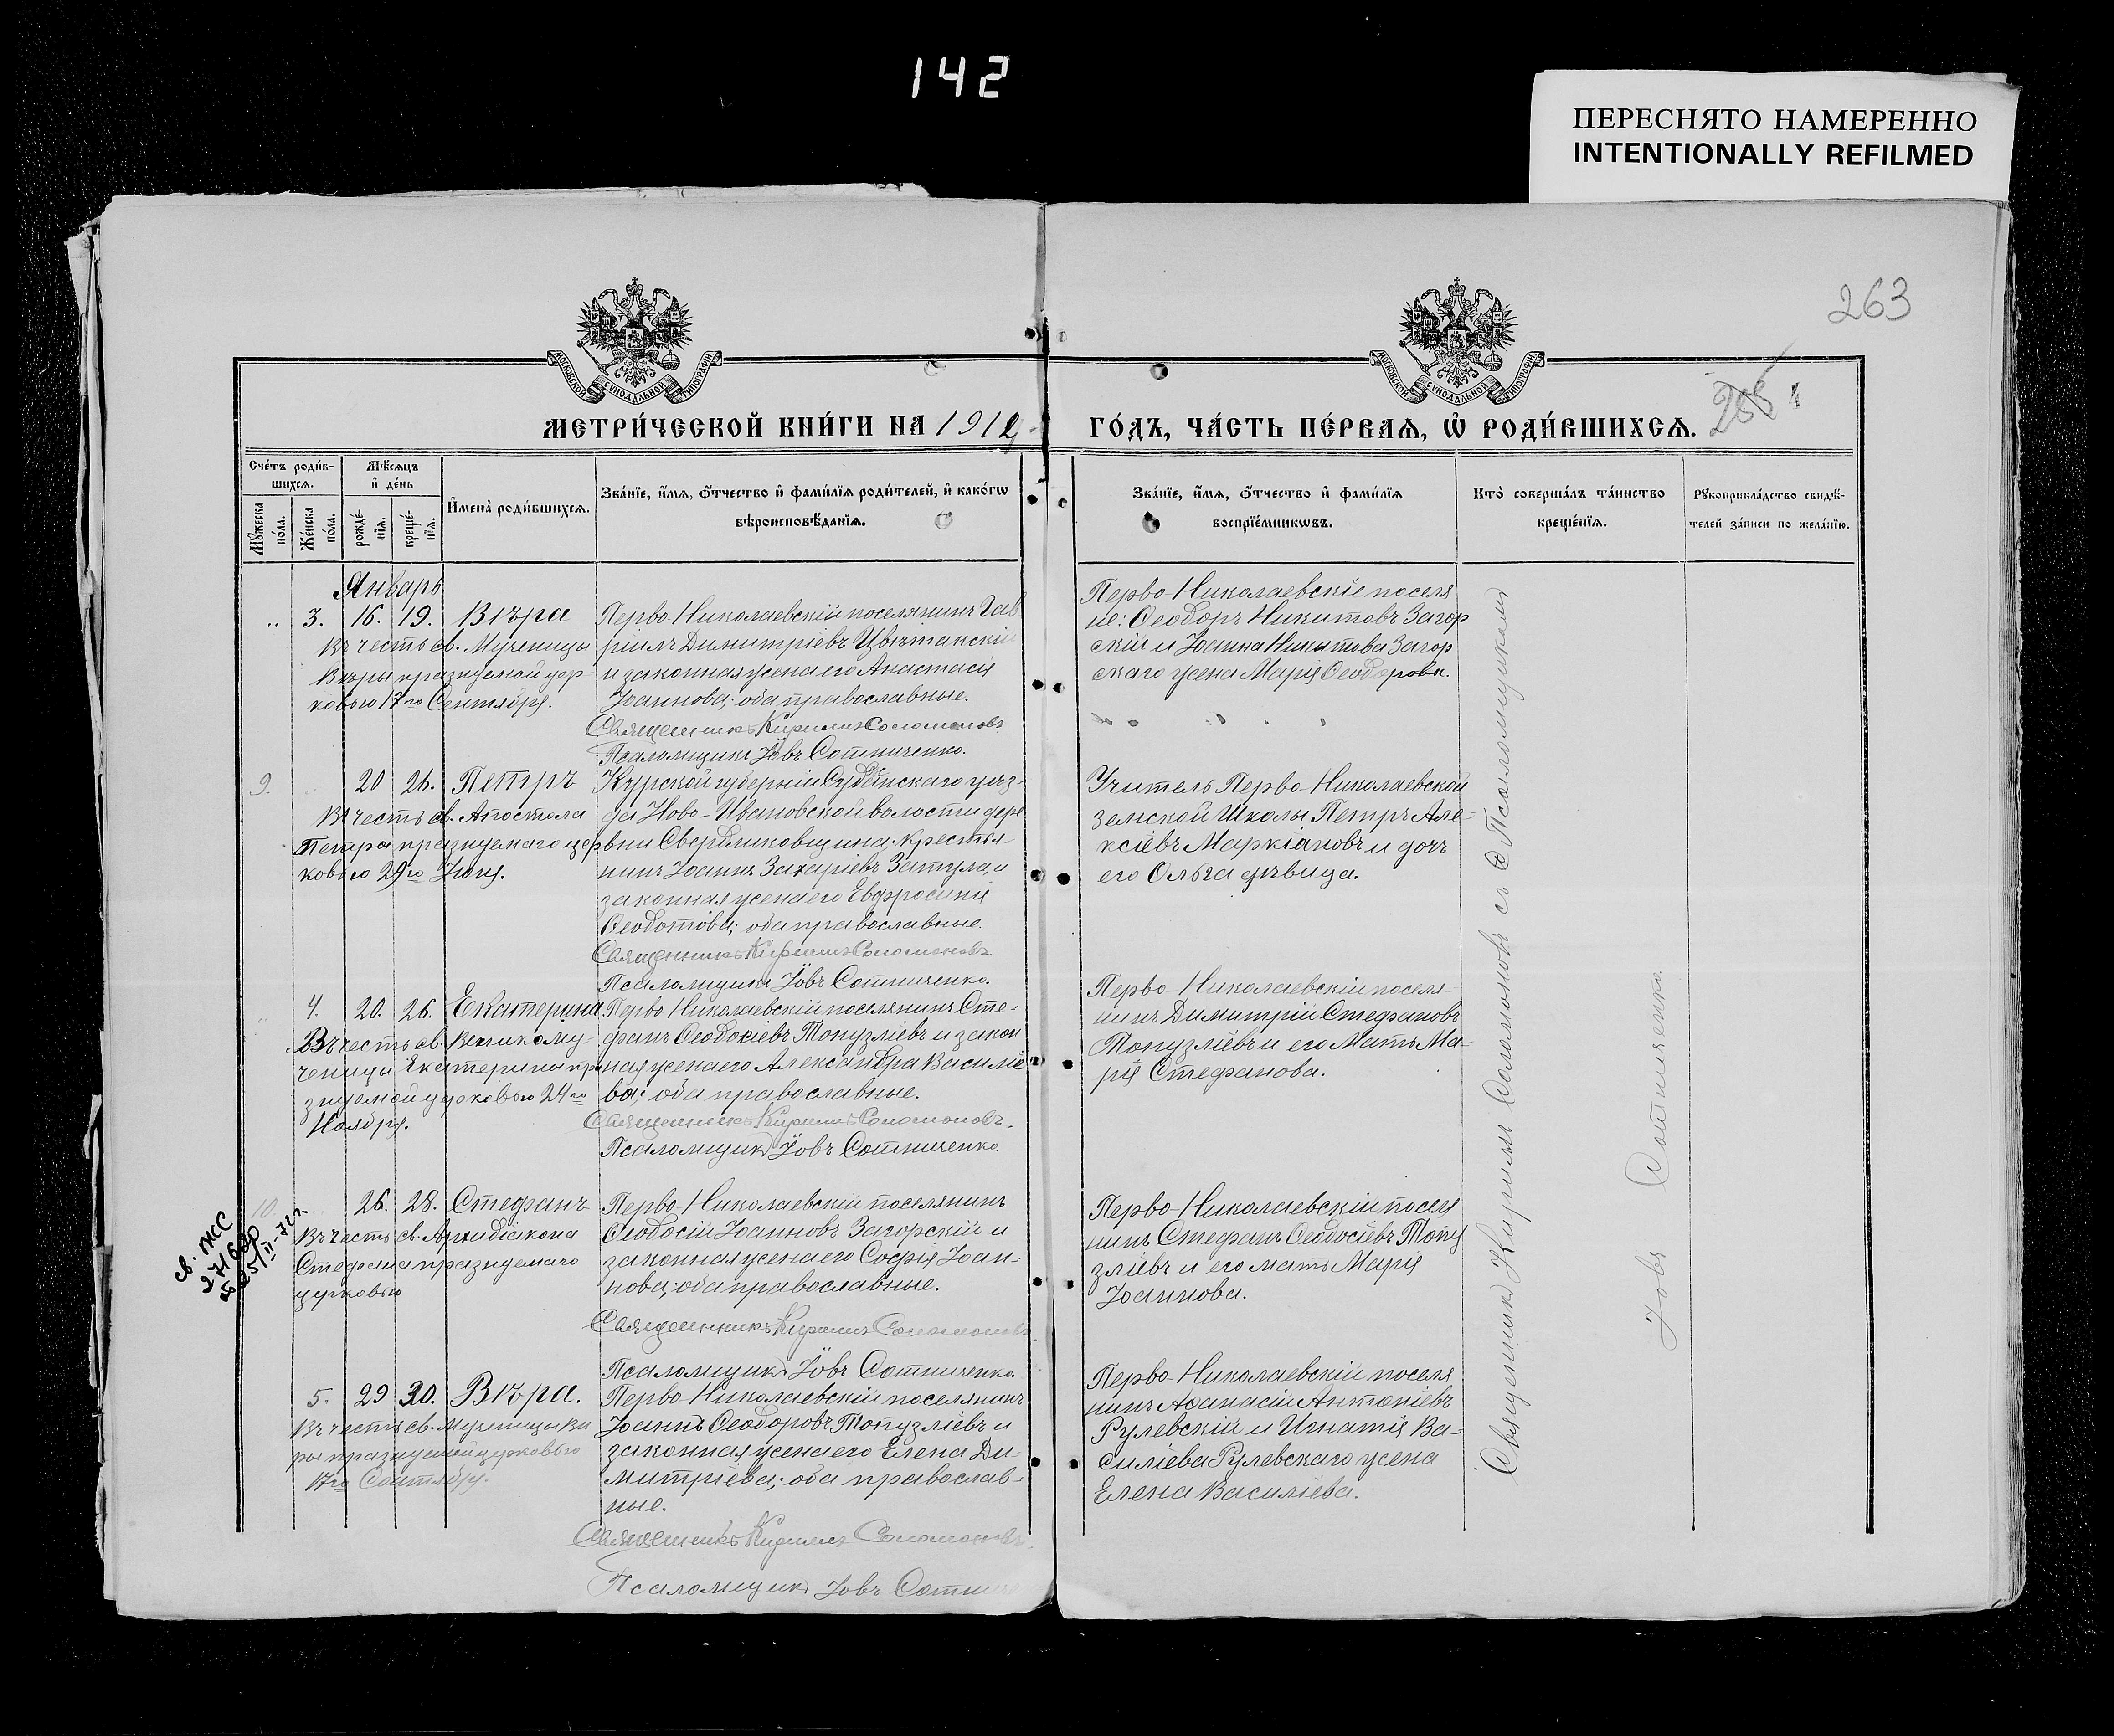 142
ПЕРЕСНЯТО НАМЕРЕННО
INTENTIONALLY REFILMED
263
МОСКОВСКОЙ СѴНОДАЛЬНОЙ ТИПОГРАФІИ
МОСКОВСКОЙ СѴНОДАЛЬНОЙ ТИПОГРАФІИ
МЕТРИ́ЧЕСКОЙ КНИ́ГИ НА 1912
ГО́ДЪ, ЧА́СТЬ ПЕ́РВАѦ, Ѡ҆ РОДИ́ВШИХСѦ.
Сче́тъ роди́в-
шихсѧ.
Мѣ́сѧцъ
и҆ де́нь
Мꙋ́жеска по́ла.
Же́нска по́ла.
рожде́-
нїѧ.
креще́-
нїѧ.
И҆мена̀ роди́вшихсѧ.
Зва́нїе, и҆́мѧ, ѻ҆́тчество и҆ фами́лїѧ роди́телей, и҆ како́гѡ
вѣроисповѣ́данїѧ.
Зва́нїе, и҆́мѧ, ѻ҆́тчество и҆ фами́лїѧ
воспрїе́мникѡвъ.
Кто̀ соверша́лъ та́инство
креще́нїѧ.
Рꙋкоприкла́дство свидѣ́-
телей за́писи по жела́нїю.
Январь
3. 16. 19. Вѣра
Въ честь св. Мученицы
Вѣры празнуемой цер
ковью 17го Сентября.
Перво-Николаевскій поселянинъ Гав
ріилъ Димитріевъ Цвѣтанскій
и законная жена его Анастасія
Іоаннова; оба православные.
Священникъ Кириллъ Соломоновъ
Псаломщикъ Іовъ Сотниченко.
Перво-Николаевскіе поселя
не: Ѳеодоръ Никитовъ Загор
скій и Іоанна Никитова Загор
скаго жена Марія Ѳеодорова.
9. 20 26. Петръ
Въ честь св. Апостола
Петра празнуемаго цер
ковью 29го Іюня.
Курской губерніи Суджанскаго уѣз-
да Ново-Ивановской волости дере
вни Свердликовщина крестья-
нинъ Іоаннъ Захаріевъ Затула, и
законная жена его Евфросинія
Ѳеодотова; оба православные.
Священникъ Кириллъ Соломоновъ.
Псаломщикъ Іовъ Сотниченко.
Учитель Перво-Николаевской
земской Школы Петръ Але-
ксіевъ Маркіановъ и дочь
его Ольга дѣвица.
4. 20. 26. Екатерина
Въ честь св. Великому-
ченицы Екатерины пра
знуемой церковью 24го
Ноября.
Перво-Николаевскій поселянинъ Сте-
фанъ Ѳеодосіевъ Топузліевъ и закон
ная жена его Александра Василіе
ва; оба православные.
Священникъ Кириллъ Соломоновъ.
Псаломщикъ Іовъ Сотниченко.
Перво-Николаевскій поселя-
нинъ Димитрій Стефановъ
Топузліевъ и его Мать Ма-
рія Стефанова.
10. 26. 28. Стефанъ
Въ честь св. Архидіакона
Стефана празнуемаго
церковью
Перво-Николаевскій поселянинъ
Ѳеодосій Іоанновъ Загорскій и
законная жена его Софія Іоан-
нова; оба православные.
Священникъ Кириллъ Соломоновъ
Псаломщикъ Іовъ Сотниченко.
Перво-Николаевскій поселя
нинъ Стефанъ Ѳеодосіевъ Топу
зліевъ и его мать Марія
Іоаннова.
5. 29 30. Вѣра.
Въ честь св. Мученицы Вѣ
ры празнуемой церковью
17го Сентября.
Перво-Николаевскій поселянинъ
Іоаннъ Ѳеодоровъ Топузліевъ и
законная жена его Елена Ди-
митріева; оба православ-
ные.
Священникъ Кириллъ Соломоновъ.
Псаломщикъ Іовъ Сотни
Перво-Николаевскій поселя
нинъ Аѳанасій Антоніевъ
Рулевскій и Игнатія Ва-
силіева Рулевскаго жена
Елена Василіева.
Священникъ Кириллъ Соломоновъ съ Псаломщикомъ
Іовъ Сотниченко.